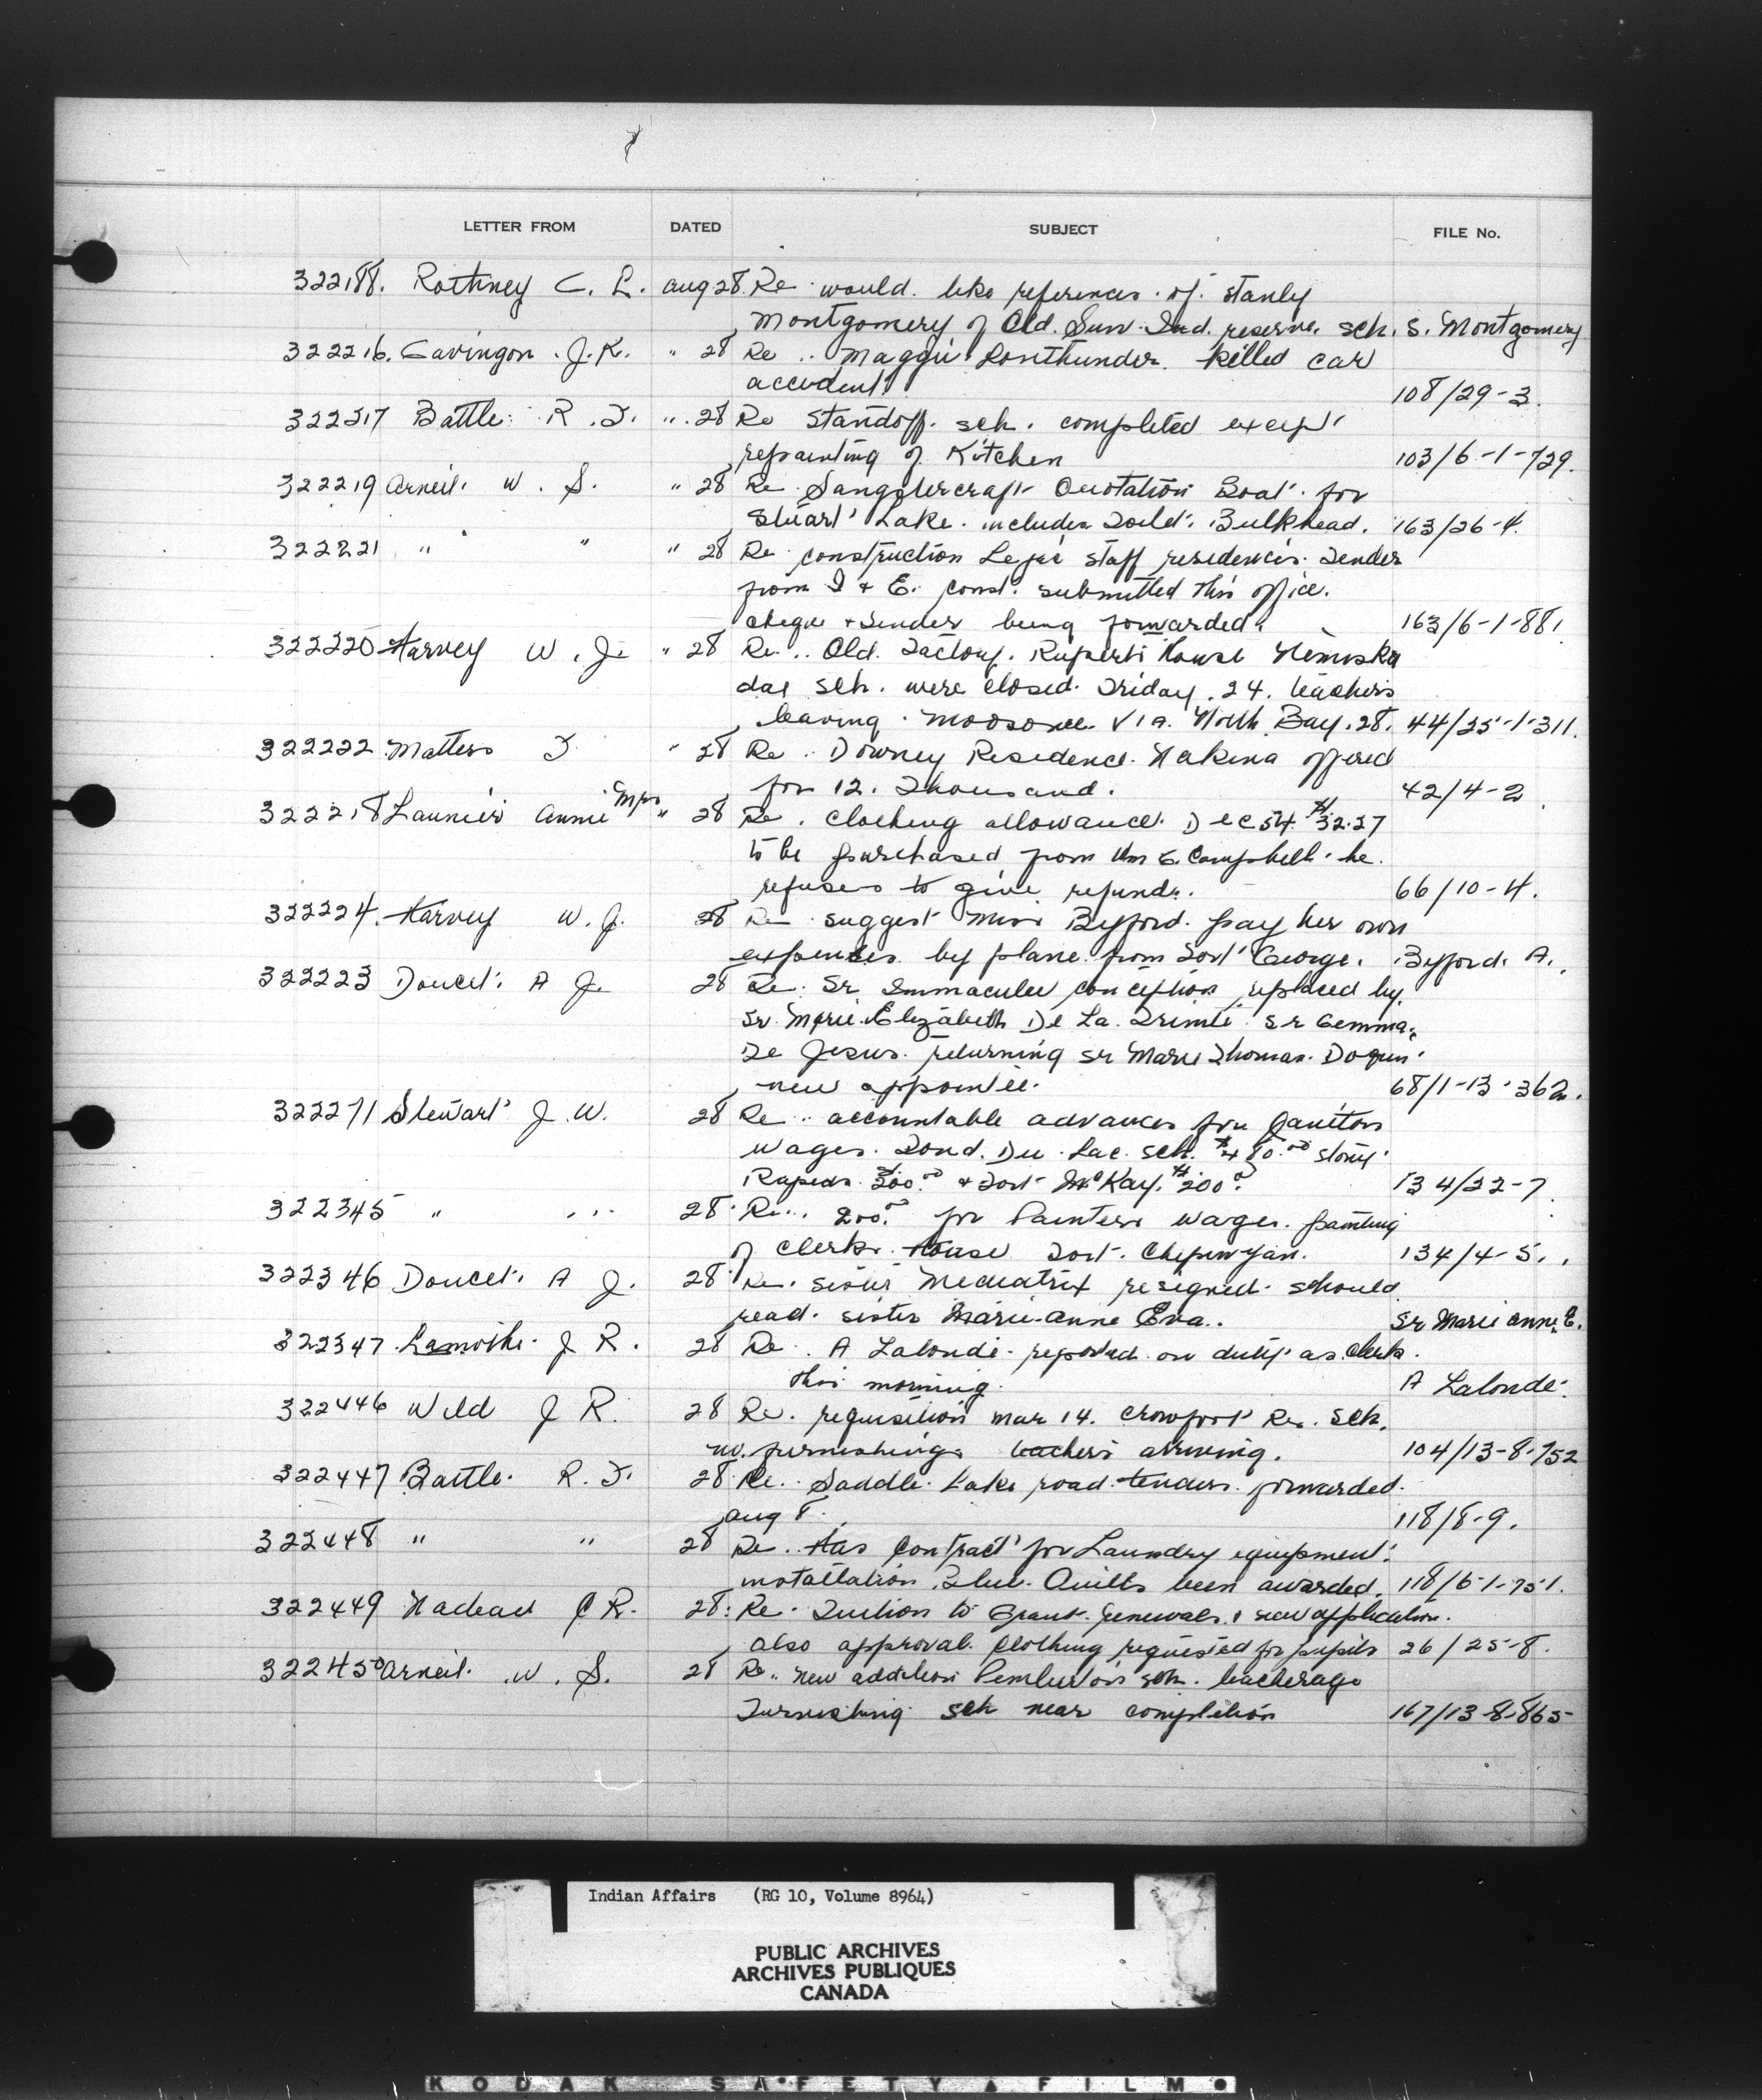 LETTER FROM DATED SUBJECT FILE No.
322188. Rothney C. L. Aug 28. Re would like references of Stanly
Montgomery of Old Sun Ind. reserve. sch. S. Montgomery
322216. J. R. " 28 Re Maggie Lonthunder. killed car
accident. 108/29-3.
322217 Battle R. F. " 28 Re Standoff sch. completed except
repainting of Kitchen 103/6-1-729.
322219 Arneil W. S. " 28 Re Quotation Boat for
Stuart Lake. includes Toilet. Bulkhead. 163/26-4.
322221 " " " 28 Re construction Lejac staff residences. Tender
from I & E. const. submitted this office.
cheque & Tender being forwarded. 163/6-1-881
322220 Harvey W. J. " 28 Re Old Factory. Ruperts House Nemiska
day sch. were closed Friday. 24. teachers
leaving Moosonee Via North Bay. 28. 44/25-1-311.
322222 Matters F " 28 Re Downey Residence Nakina offered
for 12. Thousand. 42/4-2
322218 Launier Annie Mrs " 28 Re clothing allowance Dec 54 $32.27
to be purchased from Wm E. Campbell. he
refuses to give refund. 66/10-4.
322224. Harvey W. J. 28 Re suggest Miss Byford pay her own
expenses by plane from Fort George. Byford. A.
322223 Doucet A J. 28 Re Sr Immaculee conception replaced by
Sr. Marie. Elizabeth De La Trinite Sr Gemma
De Jesus returning Sr Marie Thomas D'Aquin
new appointee. 68/1-13-362.
322271 Stewart J. W. 28 Re accountable advances for Janitors
wages. Fond. Du. Lac. sch. $480.00 Stony
Rapids $300.00 & Fort McKay. $200.00 134/22-7
322345 " " 28 Re 200.00 for Painters wages. painting
of clerks House Fort. Chipewyan. 134/4-5.
322346 Doucet. A J. 28 Re. sister Mediatrix resigned should
read sister Marie-Anne Eva. Sr Marie Anne E.
322347 Lamothe J R. 28 Re A Lalonde reported on duty as clerk
this morning. A Lalonde
322446 Wild J R. 28 Re. requisition Mar 14. Crowfoot Res. sch.
no. furnishings teachers arriving. 104/13-8-752
322447 Battle R. F. 28 Re. Saddle Lake road tenders forwarded
Aug 8. 118/8-9.
322448 " " 28 Re. Has contract for Laundry equipment
installation Blue Quills been awarded. 118/6-1-751.
322449 Nadeau C R. 28 Re. Tuition to Grant renewals & new application.
also approval clothing requested for pupils 26/25-8.
322450 Arneil. W. S. 28 Re. new addition Pemberton sch. teacherage
Furnishing sch near completion 167/13-8-865
Indian Affairs (RG 10, Volume 8964)
PUBLIC ARCHIVES
ARCHIVES PUBLIQUES
CANADA
KODAK SAFETY FILM